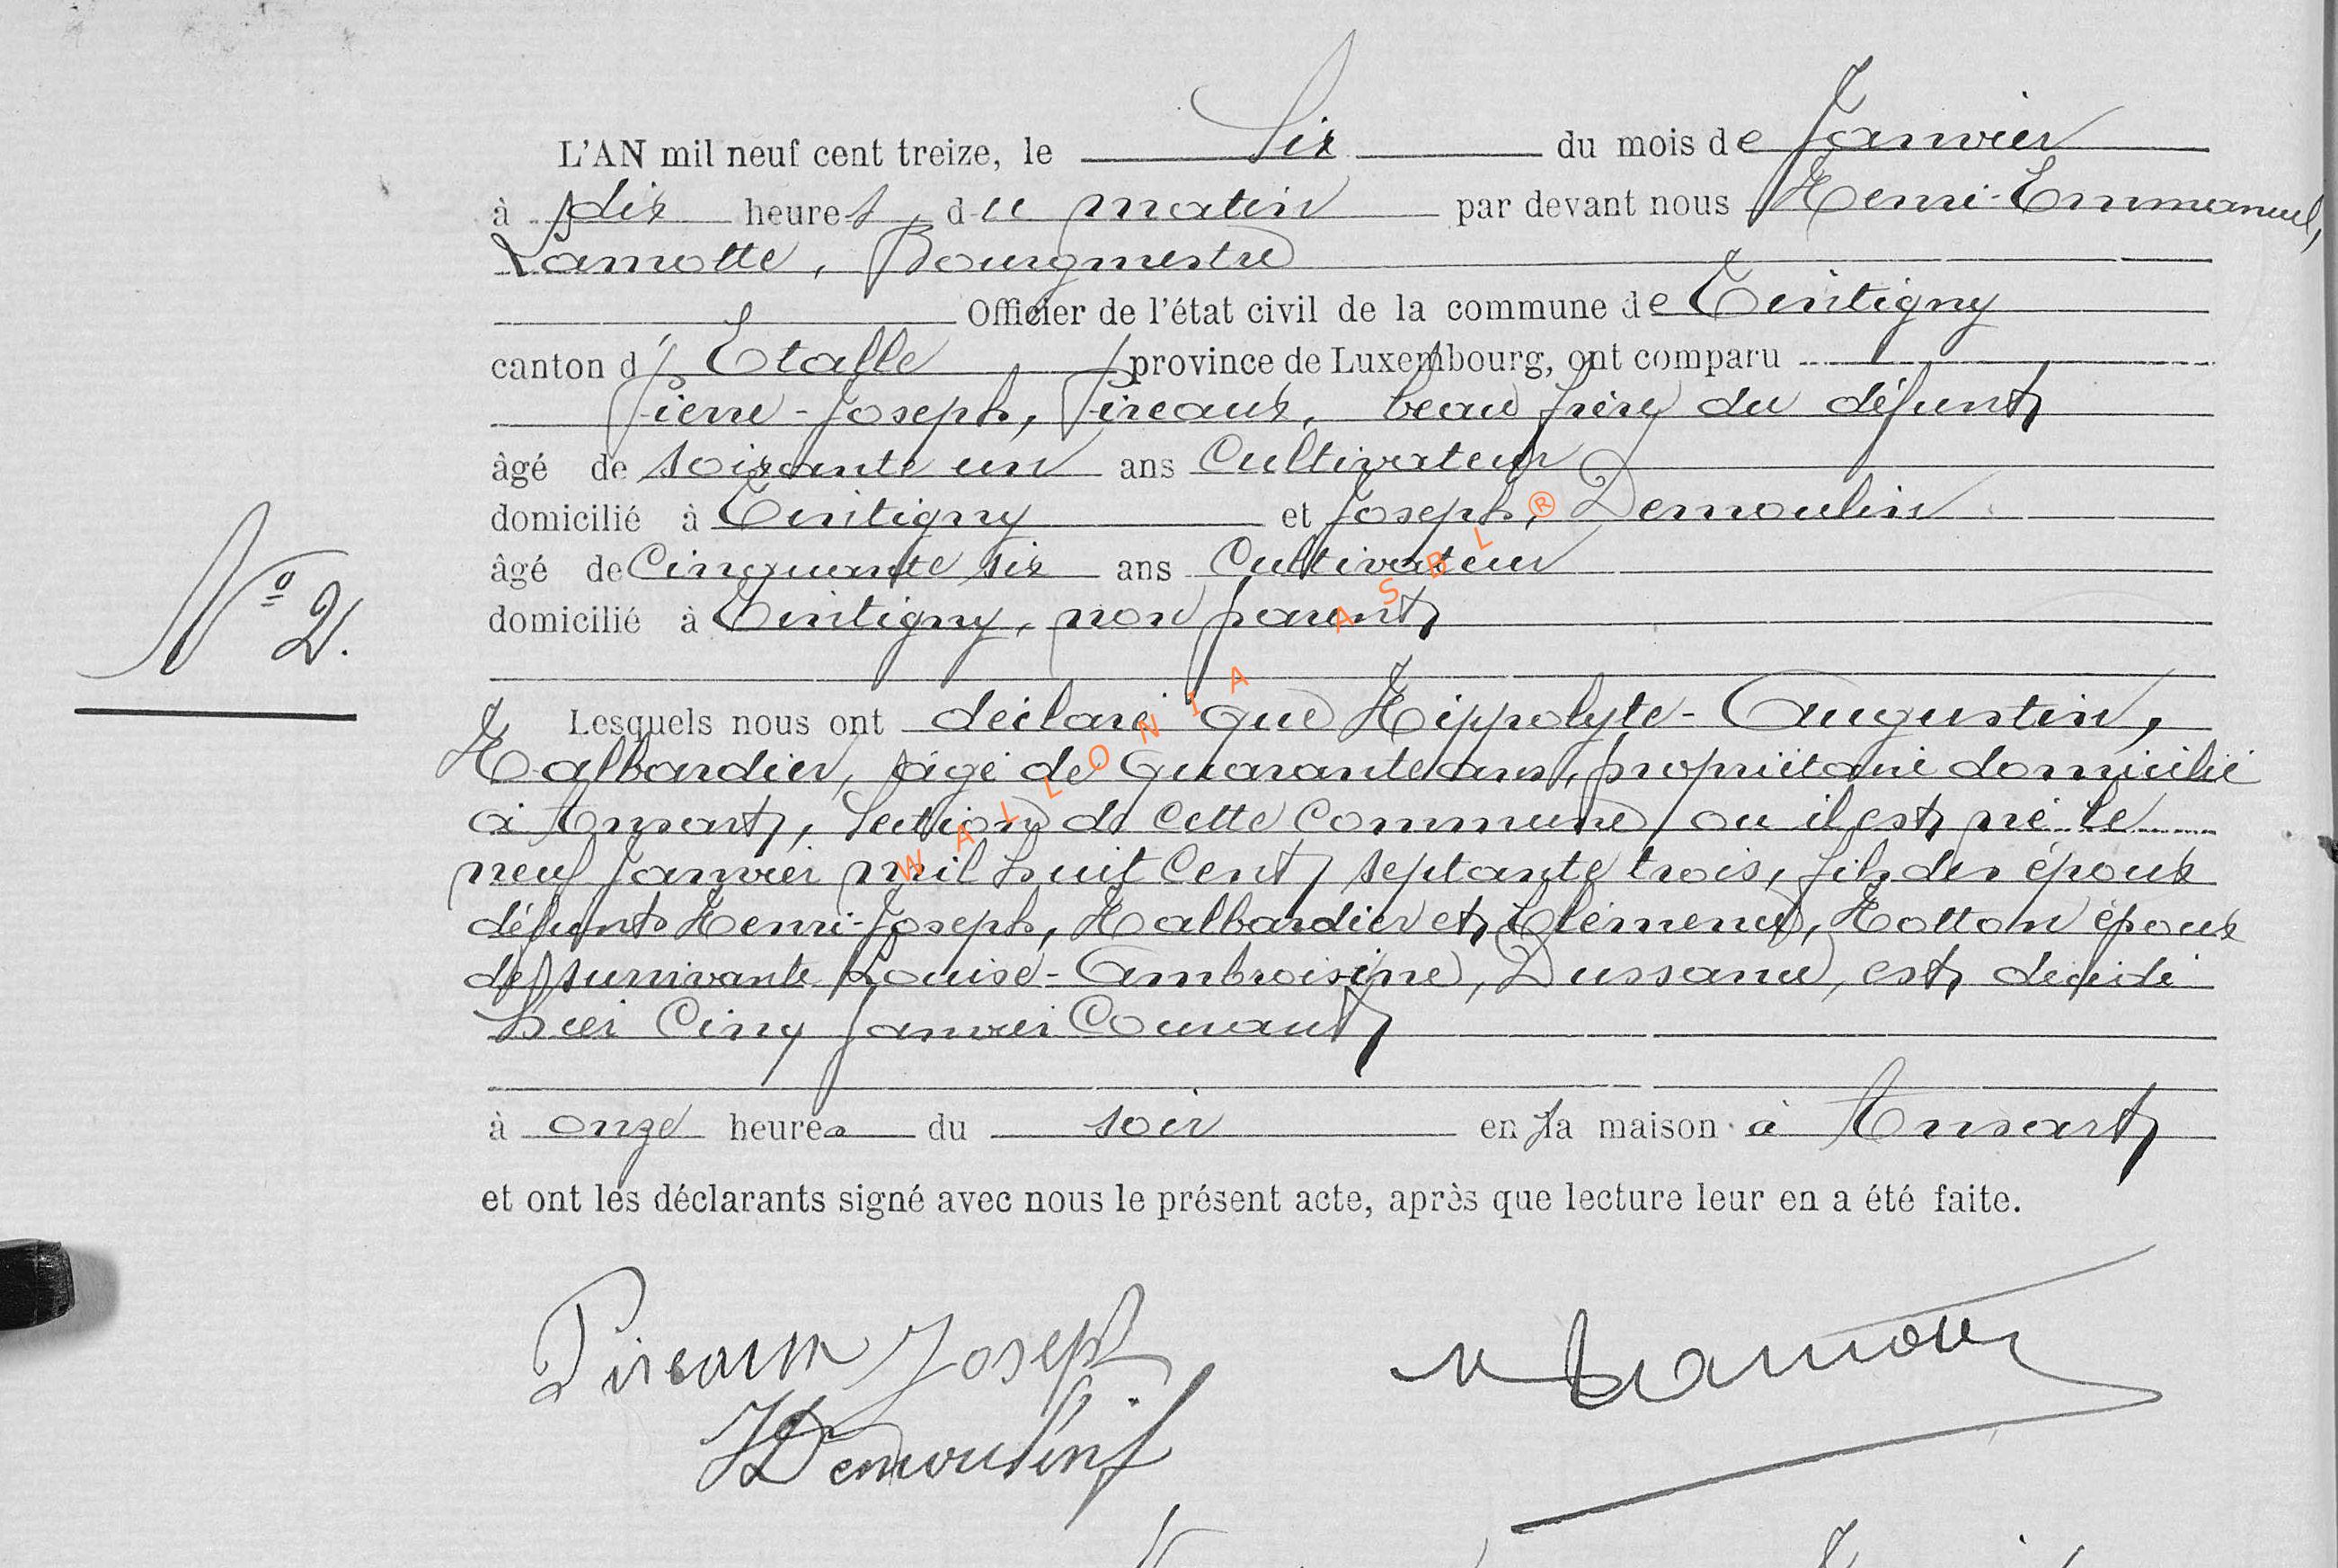 L'AN mil neuf cent treize, le Six du mois de Janvier
à dix heures du matin par devant nous Henri-Emmanuel,
Lamotte, Bourgmestre
Officier de l'état civil de la commune de Tintigny
canton d' Etalle province de Luxembourg, ont comparu
Pierre-Joseph, Pireaux, beau frère du défunt
âgé de soixante un ans Cultivateur
domicilié à Tintigny et Joseph, Demoulin
âgé de Cinquante six ans Cultivateur
domicilié à Tintigny, non parent
N° 2.
Lesquels nous ont déclaré que Hippolyte-Augustin,
Halbardier, âgé de quarante ans, propriétaire domicilié
à Ansart, Section de cette Commune, ou il est né le
neuf Janvier mil huit Cent septante trois, fils des époux
défunts Henri-Joseph, Halbardier et Clémence, Hotton époux
de survivante Louise-Ambroisine, Dussane, est décédé
hier Cinq Janvier Courant
à onze heures du soir en sa maison à Ansart
et ont les déclarants signé avec nous le présent acte, après que lecture leur en a été faite.
Pireaux Joseph
J Demoulin
Lamotte
WALLONIA ASBL ®